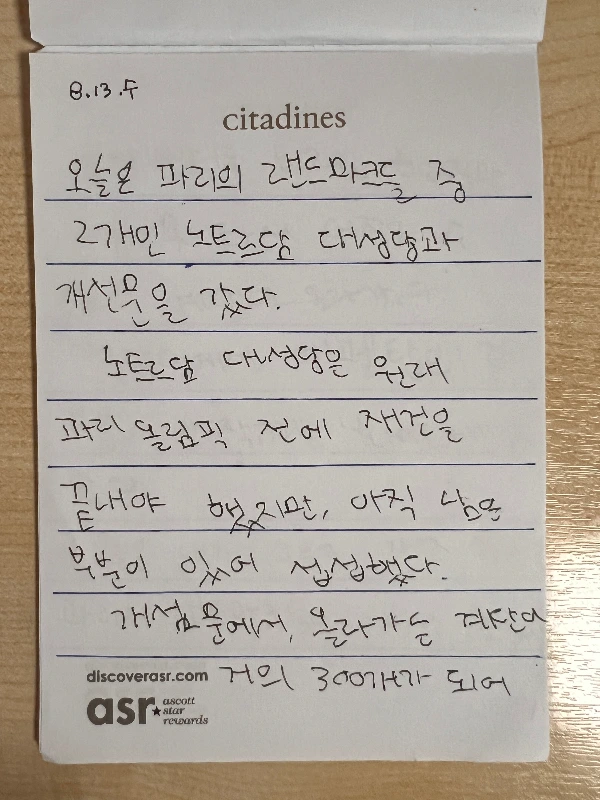 8.13.수
citadines
오늘은 파리의 랜드마크들 중
2개인 노트르담 대성당과
개선문을 갔다.
노트르담 대성당은 원래
파리 올림픽 전에 재건을
끝내야 했지만, 아직 남은
부분이 있어 섭섭했다.
개섬문에서, 올라가는 계단이
discoverasr.com 거의 300개가 되어
asr ascott
star
rewards